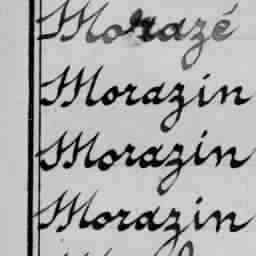 Morazé
Morazin
Morazin
Morazin